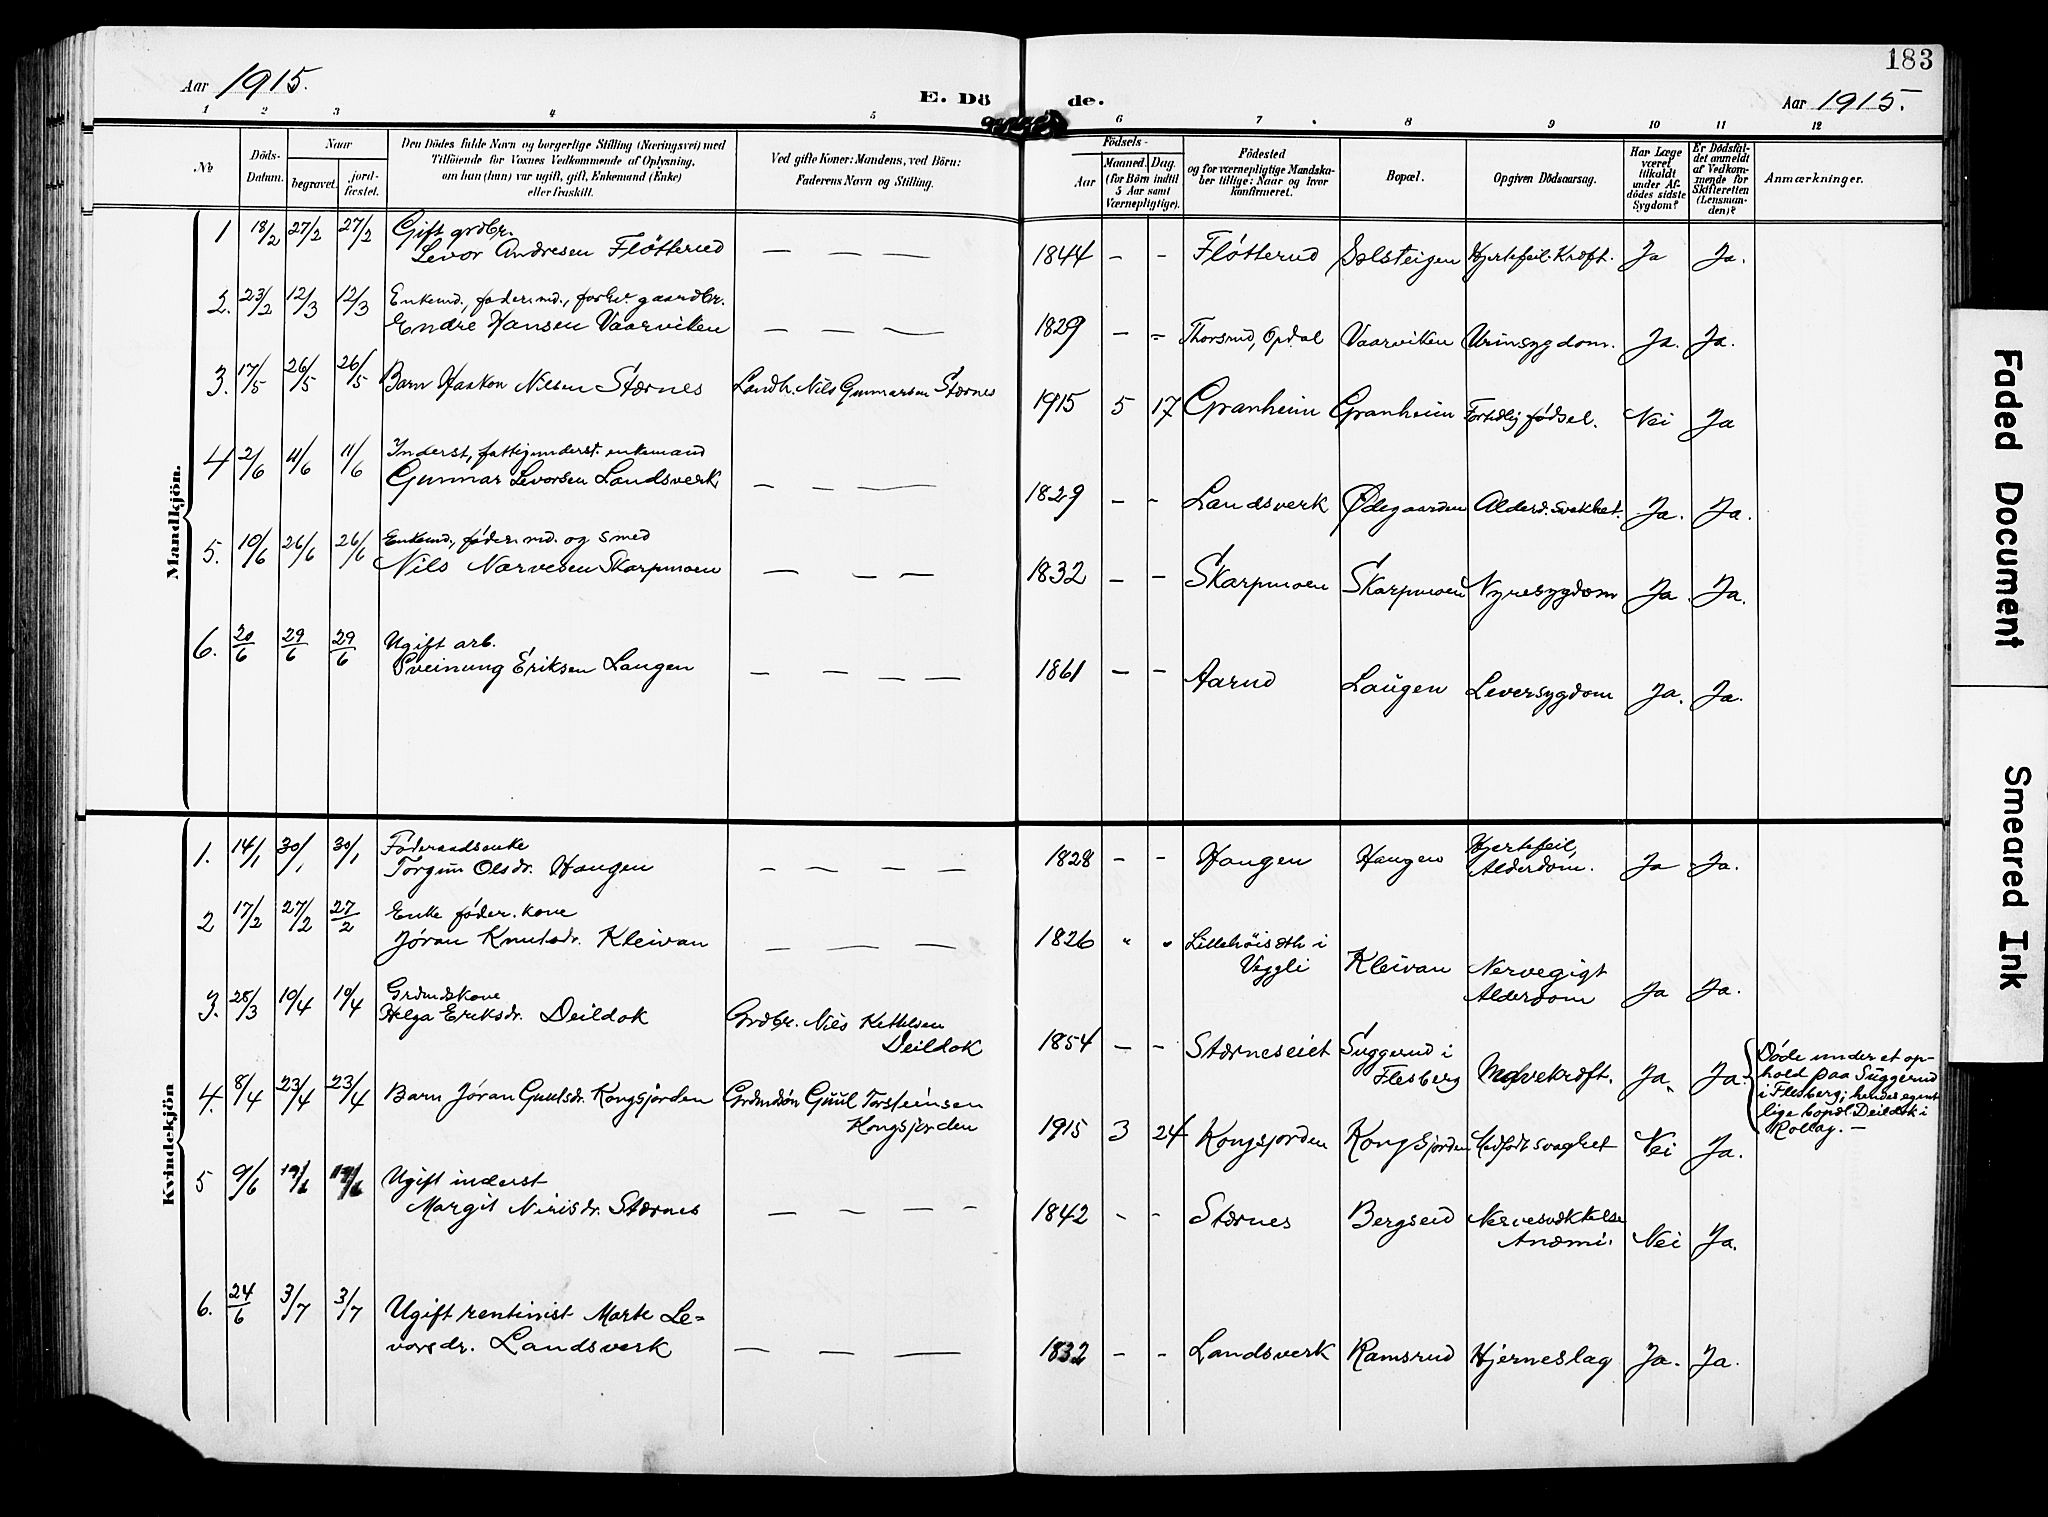 183
Aar 1915.
E. Dö de.
Aar 1915.
1 2 3 4 5 6 7 8 9 10 11 12
No
Döds-Datum.
Naar
begravet.
jord-fæstet.
Den Dödes fulde Navn og borgerlige Stilling (Næringsvei) med
Tilföiende for Voxnes Vedkommende af Oplysning,
om han (hun) var ugift, gift, Enkemand (Enke)
eller fraskilt.
Ved gifte Koner: Mandens, ved Börn:
Faderens Navn og Stilling.
Födsels-
Aar
Maaned.
Dag.
(for Börn indtil
5 Aar samt
Værnepligtige).
Födested
og for værnepligtige Mandska-
ber tillige: Naar og hvor
konfirmeret.
Bopæl.
Opgiven Dödsaarsag.
Har Læge
været
tilkaldt
under Af-
dödes sidste
Sygdom?
Er Dödsfal-
det anmeldt
af Vedkom-
mende for
Skifteretten
(Lensman-
den)?
Anmærkninger.
Mandkjön.
1 18/2 27/2 27/2 Gift grdbr.
Levor Andresen Fløtterud — — — 1844 — - Fløtterud Solsteigen Hjertefeil. Kræft. Ja Ja.
2. 23/2 12/3 12/3 Enkemd., føder.md., forhv. gaardbr.
Endre Hansen Vaarviken — — — 1829 — - Thorsrud, Opdal Vaarviken Urinsygdom. Ja. Ja.
3. 17/5 26/5 26/5 Barn Haakon Nilsen Stærnes Landbr. Nils Gunnarsen Stærnes 1915 5 17 Granheim Granheim Fortidlig fødsel. Nei Ja
4 2/6 11/6 11/6 Inderst, fattigunderst. enkemand
Gunnar Levorsen Landsverk — — — 1829 — - Landsverk Ødegaarden Alderd. svækket. Ja. Ja.
5. 10/6 26/6 26/6 Enkemd., føder.md. og smed
Nils Narvesen Skarpmoen — — — 1832 — - Skarpmoen Skarpmoen Nyresygdom Ja. Ja.
6. 20/6 29/6 29/6 Ugift arb.
Sveinung Eriksen Laugen — — — — 1861 — - Aarud Laugen Leversygdom Ja. Ja.
Kvindekjön
1. 14/1 30/1 30/1 Føderaadsenke
Torgun Olsdr. Haugen — — — — 1828 — - Haugen Haugen Hjertefeil,
Alderdom. Ja Ja.
2 17/2 27/2 27/2 Enke føder.kone
Jøran Knutsdr. Kleivan — — — 1826 " " Lillehöiseth i
Veggli Kleivan Nervegigt
Alderdom Ja Ja.
3. 28/3 10/4 10/4 Grdmdskone
Helga Eriksdr. Deildok Grdbr. Nils Kettelsen
Deildok 1854 — - Stærneseiet Suggerud i
Flesberg Mavekræft. Ja. Ja.
Døde under et op-
hold paa Suggerud
i Flesberg; hendes egent-
lige bopæl. Deildok i
Rollag. —
4. 8/4 23/4 23/4 Barn Jøran Guulsdr. Kongsjorden Grdmdsøn Guul Torsteinsen
Kongsjorden 1915 3 24 Kongsjorden Kongsjorden Medfødt svaghet Nei Ja.
5 9/6 19/6 19/6 Ugift inderst
Margit Nirisdr. Stærnes — — — - 1842 - - Stærnes Bergseid Nervesvækkelse
Anæmi. Nei Ja.
6. 24/6 3/7 3/7 Ugift rentinist Marte Le-
vorsdr. Landsverk — — — 1832 - - Landsverk Ramsrud Hjerneslag Ja. Ja.
Faded Document
Smeared Ink